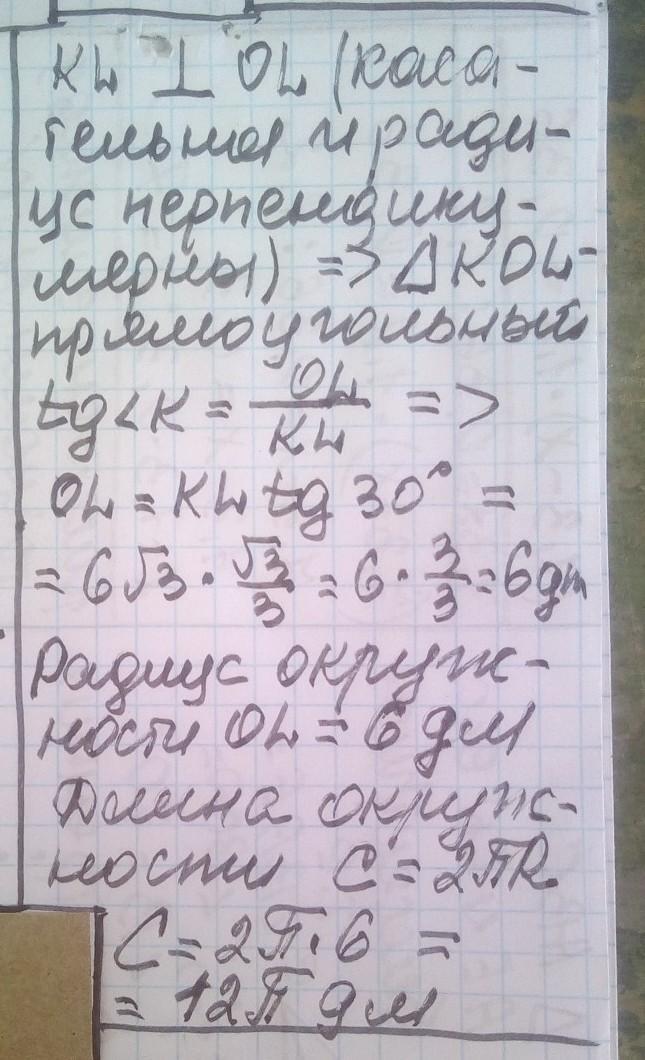 KL ⊥ OL (каса-
тельная и ради-
ус перпендику-
лярны) => △KOL-
прямоугольный
tg<K = OL/KL =>
OL = KL tg 30° =
= 6√3 · √3/3 = 6 · 3/3 = 6 дм
Радиус окруж-
ности OL = 6 дм
Длина окруж-
ности C = 2πR
C = 2π·6 =
= 12π дм